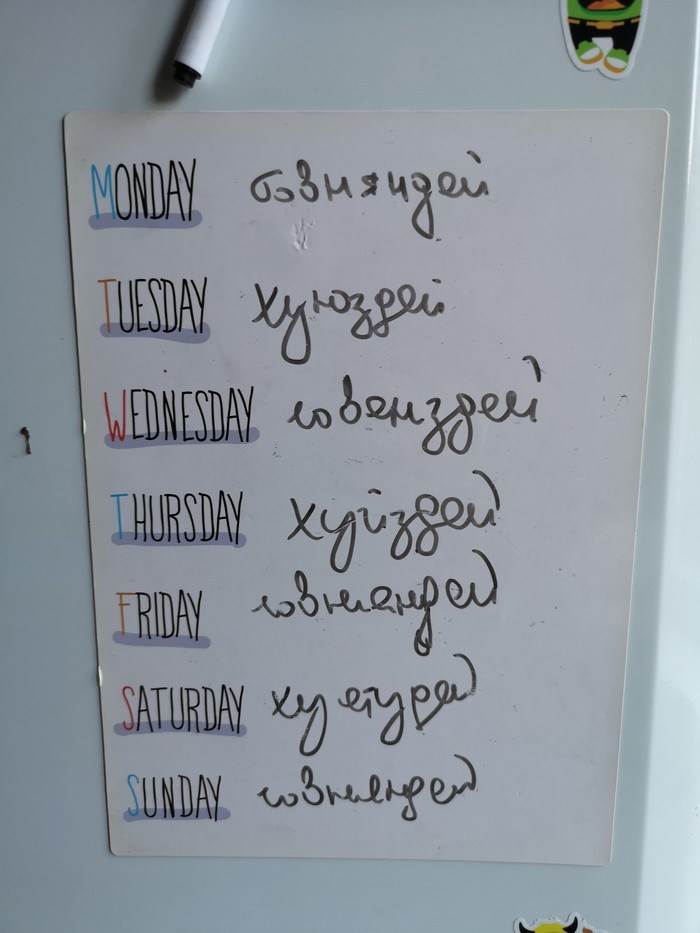 MONDAY говняндей
TUESDAY хуюздей
WEDNESDAY говензздей
THURSDAY хуйздей
FRIDAY говняндей
SATURDAY хуетурдей
SUNDAY говняндей